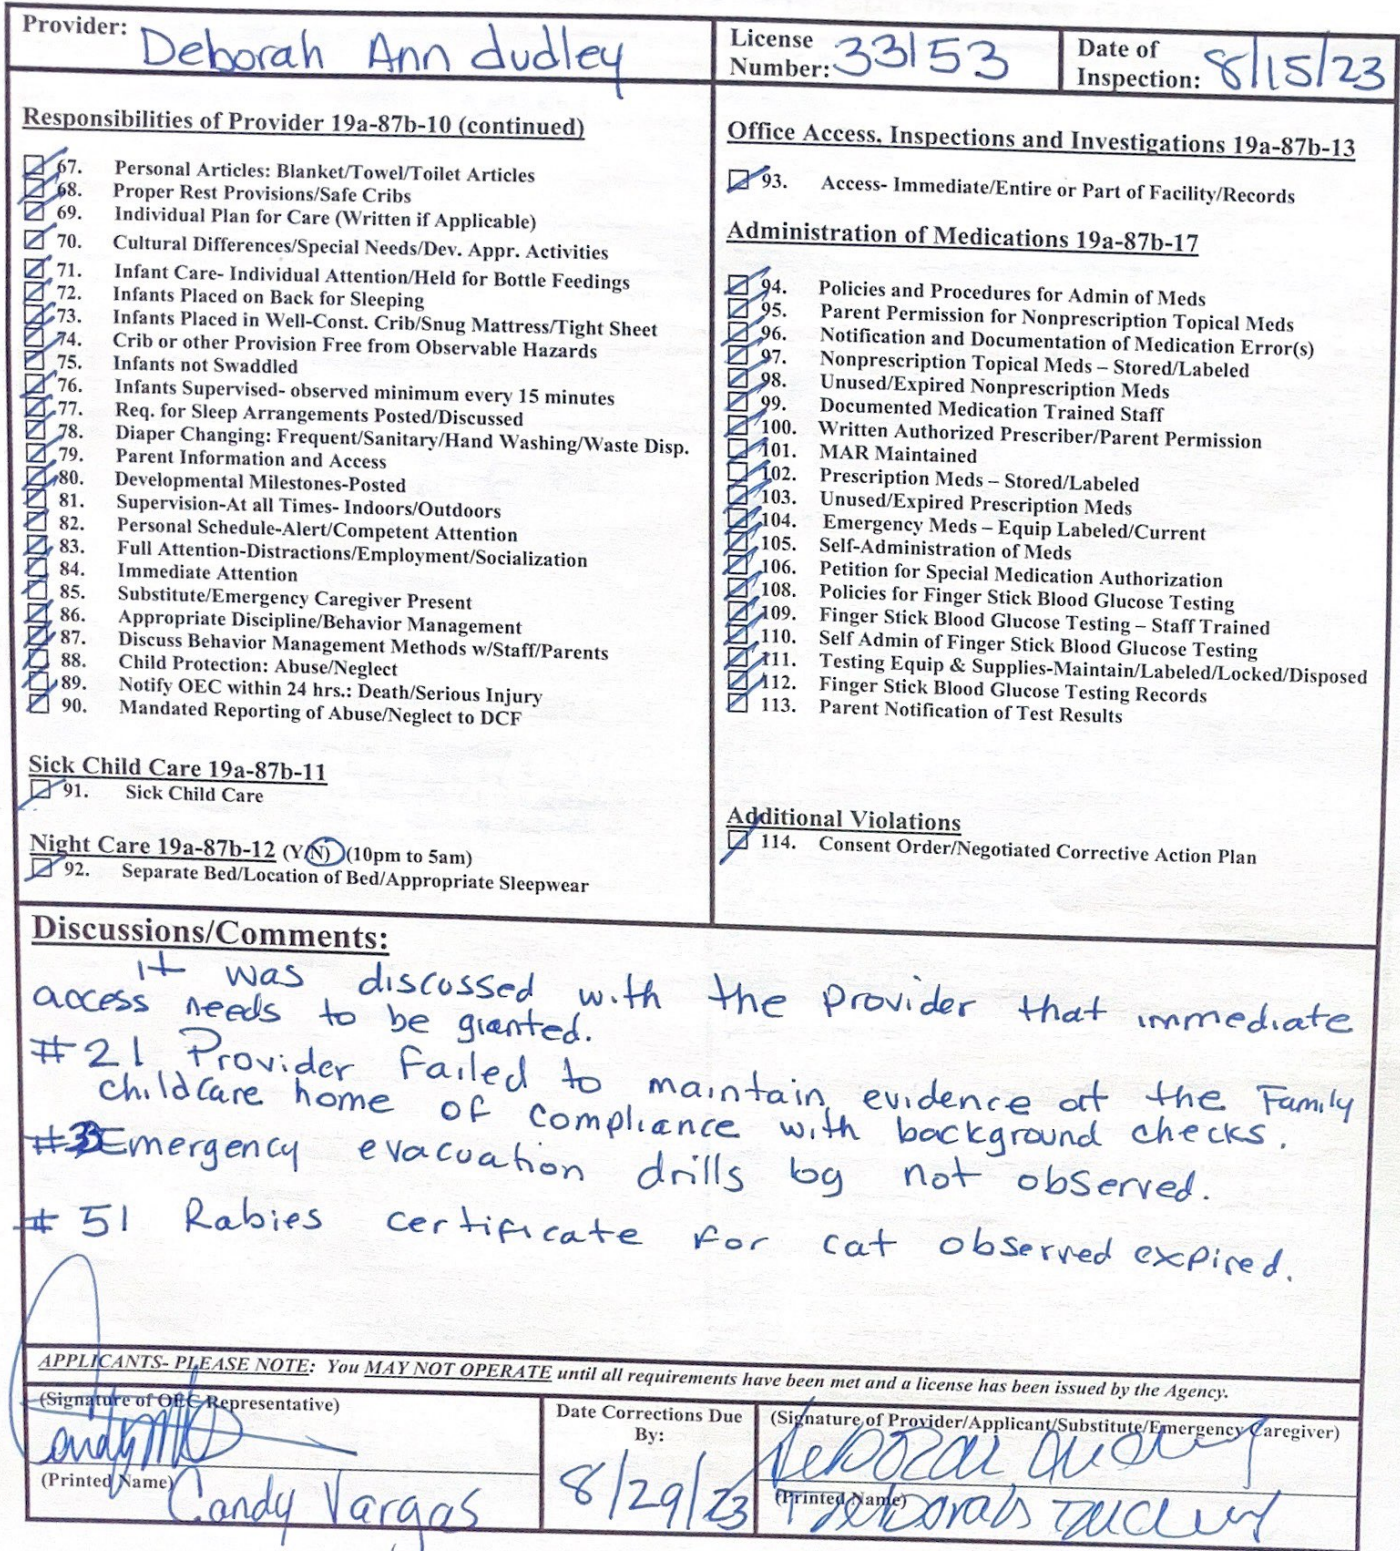 Provider: Deborah Ann dudley
License Number: 33153
Date of Inspection: 8/15/23
Responsibilities of Provider 19a-87b-10 (continued)
67. Personal Articles: Blanket/Towel/Toilet Articles
68. Proper Rest Provisions/Safe Cribs
69. Individual Plan for Care (Written if Applicable)
70. Cultural Differences/Special Needs/Dev. Appr. Activities
71. Infant Care- Individual Attention/Held for Bottle Feedings
72. Infants Placed on Back for Sleeping
73. Infants Placed in Well-Const. Crib/Snug Mattress/Tight Sheet
74. Crib or other Provision Free from Observable Hazards
75. Infants not Swaddled
76. Infants Supervised- observed minimum every 15 minutes
77. Req. for Sleep Arrangements Posted/Discussed
78. Diaper Changing: Frequent/Sanitary/Hand Washing/Waste Disp.
79. Parent Information and Access
80. Developmental Milestones-Posted
81. Supervision-At all Times- Indoors/Outdoors
82. Personal Schedule-Alert/Competent Attention
83. Full Attention-Distractions/Employment/Socialization
84. Immediate Attention
85. Substitute/Emergency Caregiver Present
86. Appropriate Discipline/Behavior Management
87. Discuss Behavior Management Methods w/Staff/Parents
88. Child Protection: Abuse/Neglect
89. Notify OEC within 24 hrs.: Death/Serious Injury
90. Mandated Reporting of Abuse/Neglect to DCF
Sick Child Care 19a-87b-11
91. Sick Child Care
Night Care 19a-87b-12 (Y/N) (10pm to 5am)
92. Separate Bed/Location of Bed/Appropriate Sleepwear
Office Access, Inspections and Investigations 19a-87b-13
93. Access- Immediate/Entire or Part of Facility/Records
Administration of Medications 19a-87b-17
94. Policies and Procedures for Admin of Meds
95. Parent Permission for Nonprescription Topical Meds
96. Notification and Documentation of Medication Error(s)
97. Nonprescription Topical Meds – Stored/Labeled
98. Unused/Expired Nonprescription Meds
99. Documented Medication Trained Staff
100. Written Authorized Prescriber/Parent Permission
101. MAR Maintained
102. Prescription Meds – Stored/Labeled
103. Unused/Expired Prescription Meds
104. Emergency Meds – Equip Labeled/Current
105. Self-Administration of Meds
106. Petition for Special Medication Authorization
108. Policies for Finger Stick Blood Glucose Testing
109. Finger Stick Blood Glucose Testing – Staff Trained
110. Self Admin of Finger Stick Blood Glucose Testing
111. Testing Equip & Supplies-Maintain/Labeled/Locked/Disposed
112. Finger Stick Blood Glucose Testing Records
113. Parent Notification of Test Results
Additional Violations
114. Consent Order/Negotiated Corrective Action Plan
Discussions/Comments:
It was discussed with the provider that immediate
access needs to be granted.
#21 Provider failed to maintain evidence at the Family
childcare home of compliance with background checks.
Emergency evacuation drills log not observed.
#51 Rabies certificate for cat observed expired.
APPLICANTS- PLEASE NOTE: You MAY NOT OPERATE until all requirements have been met and a license has been issued by the Agency.
(Signature of OEC Representative)
(Printed Name) Candy Vargas
Date Corrections Due
By:
8/29/23
(Signature of Provider/Applicant/Substitute/Emergency Caregiver)
Deborah Dudley
(Printed Name) Deborah Dudley